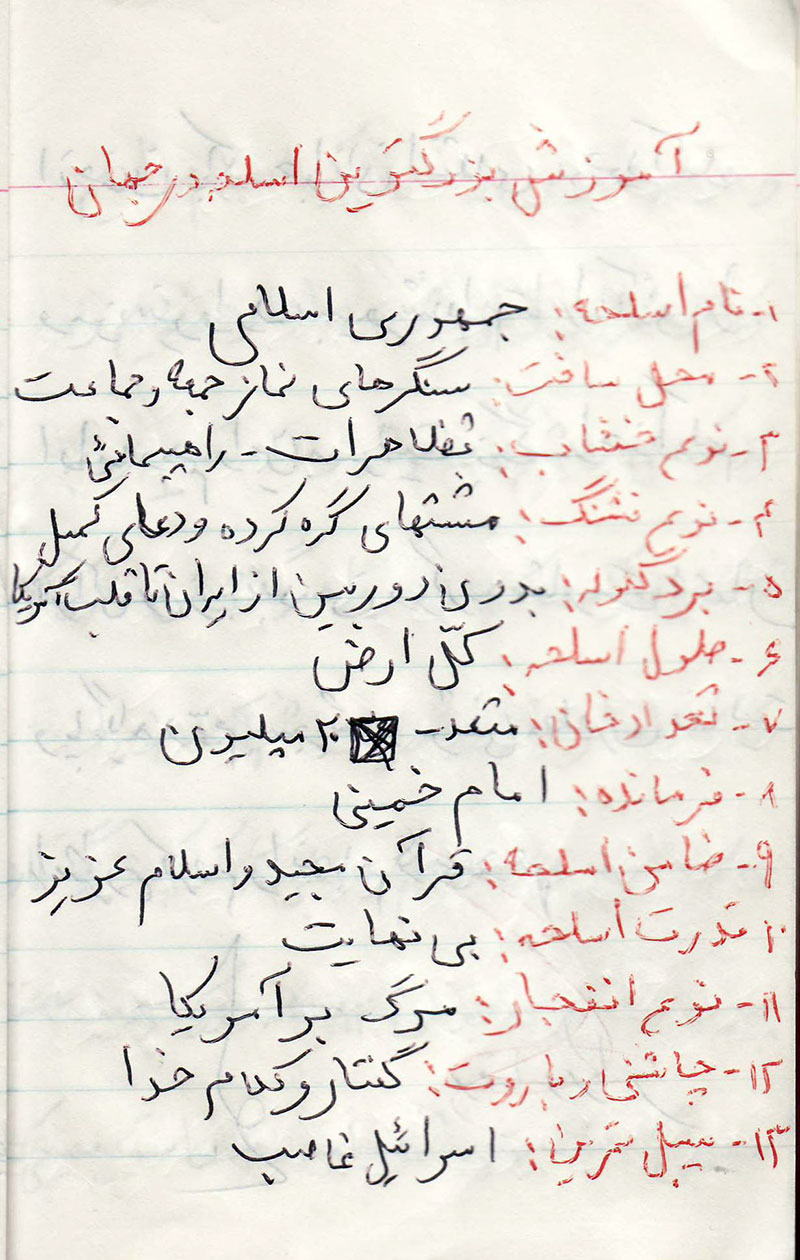 آموزش بزرگترین اسلحه در جهان
۱- نام اسلحه: جمهوری اسلامی
۲- محل ساخت: سنگرهای نماز جمعه و جماعت
۳- نوع خشاب: تظاهرات - راهپیمائی
۴- نوع فشنگ: مشتهای گره کرده و دعای کمیل
۵- برد گلوله: بدون دوربین از ایران تا قلب آمریکا
۶- طول اسلحه: کلّ ارض
۷- تعداد خان: متعد - ۲۰ میلیون
۸- فرمانده: امام خمینی
۹- ضامن اسلحه: قرآن مجید و اسلام عزیز
۱۰- قدرت اسلحه: بی نهایت
۱۱- نوع انفجار: مرگ بر آمریکا
۱۲- چاشنی و باروت: گفتار و کلام خدا
۱۳- سیبل تمرین: اسرائیل غاصب